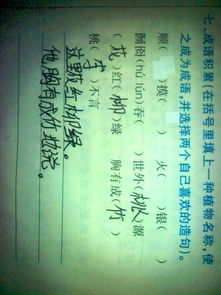 七、成语积累(在括号里填上一种植物名称,使
之成为成语,并选择两个自己喜欢的造句)。
顺( )摸( ) 火( )银( )
囫囵(hú lún)吞( ) 世外(桃)源
(花)红(柳)绿 胸有成(竹)
桃(李)不言
这里花红柳绿。
他胸有成竹地说。